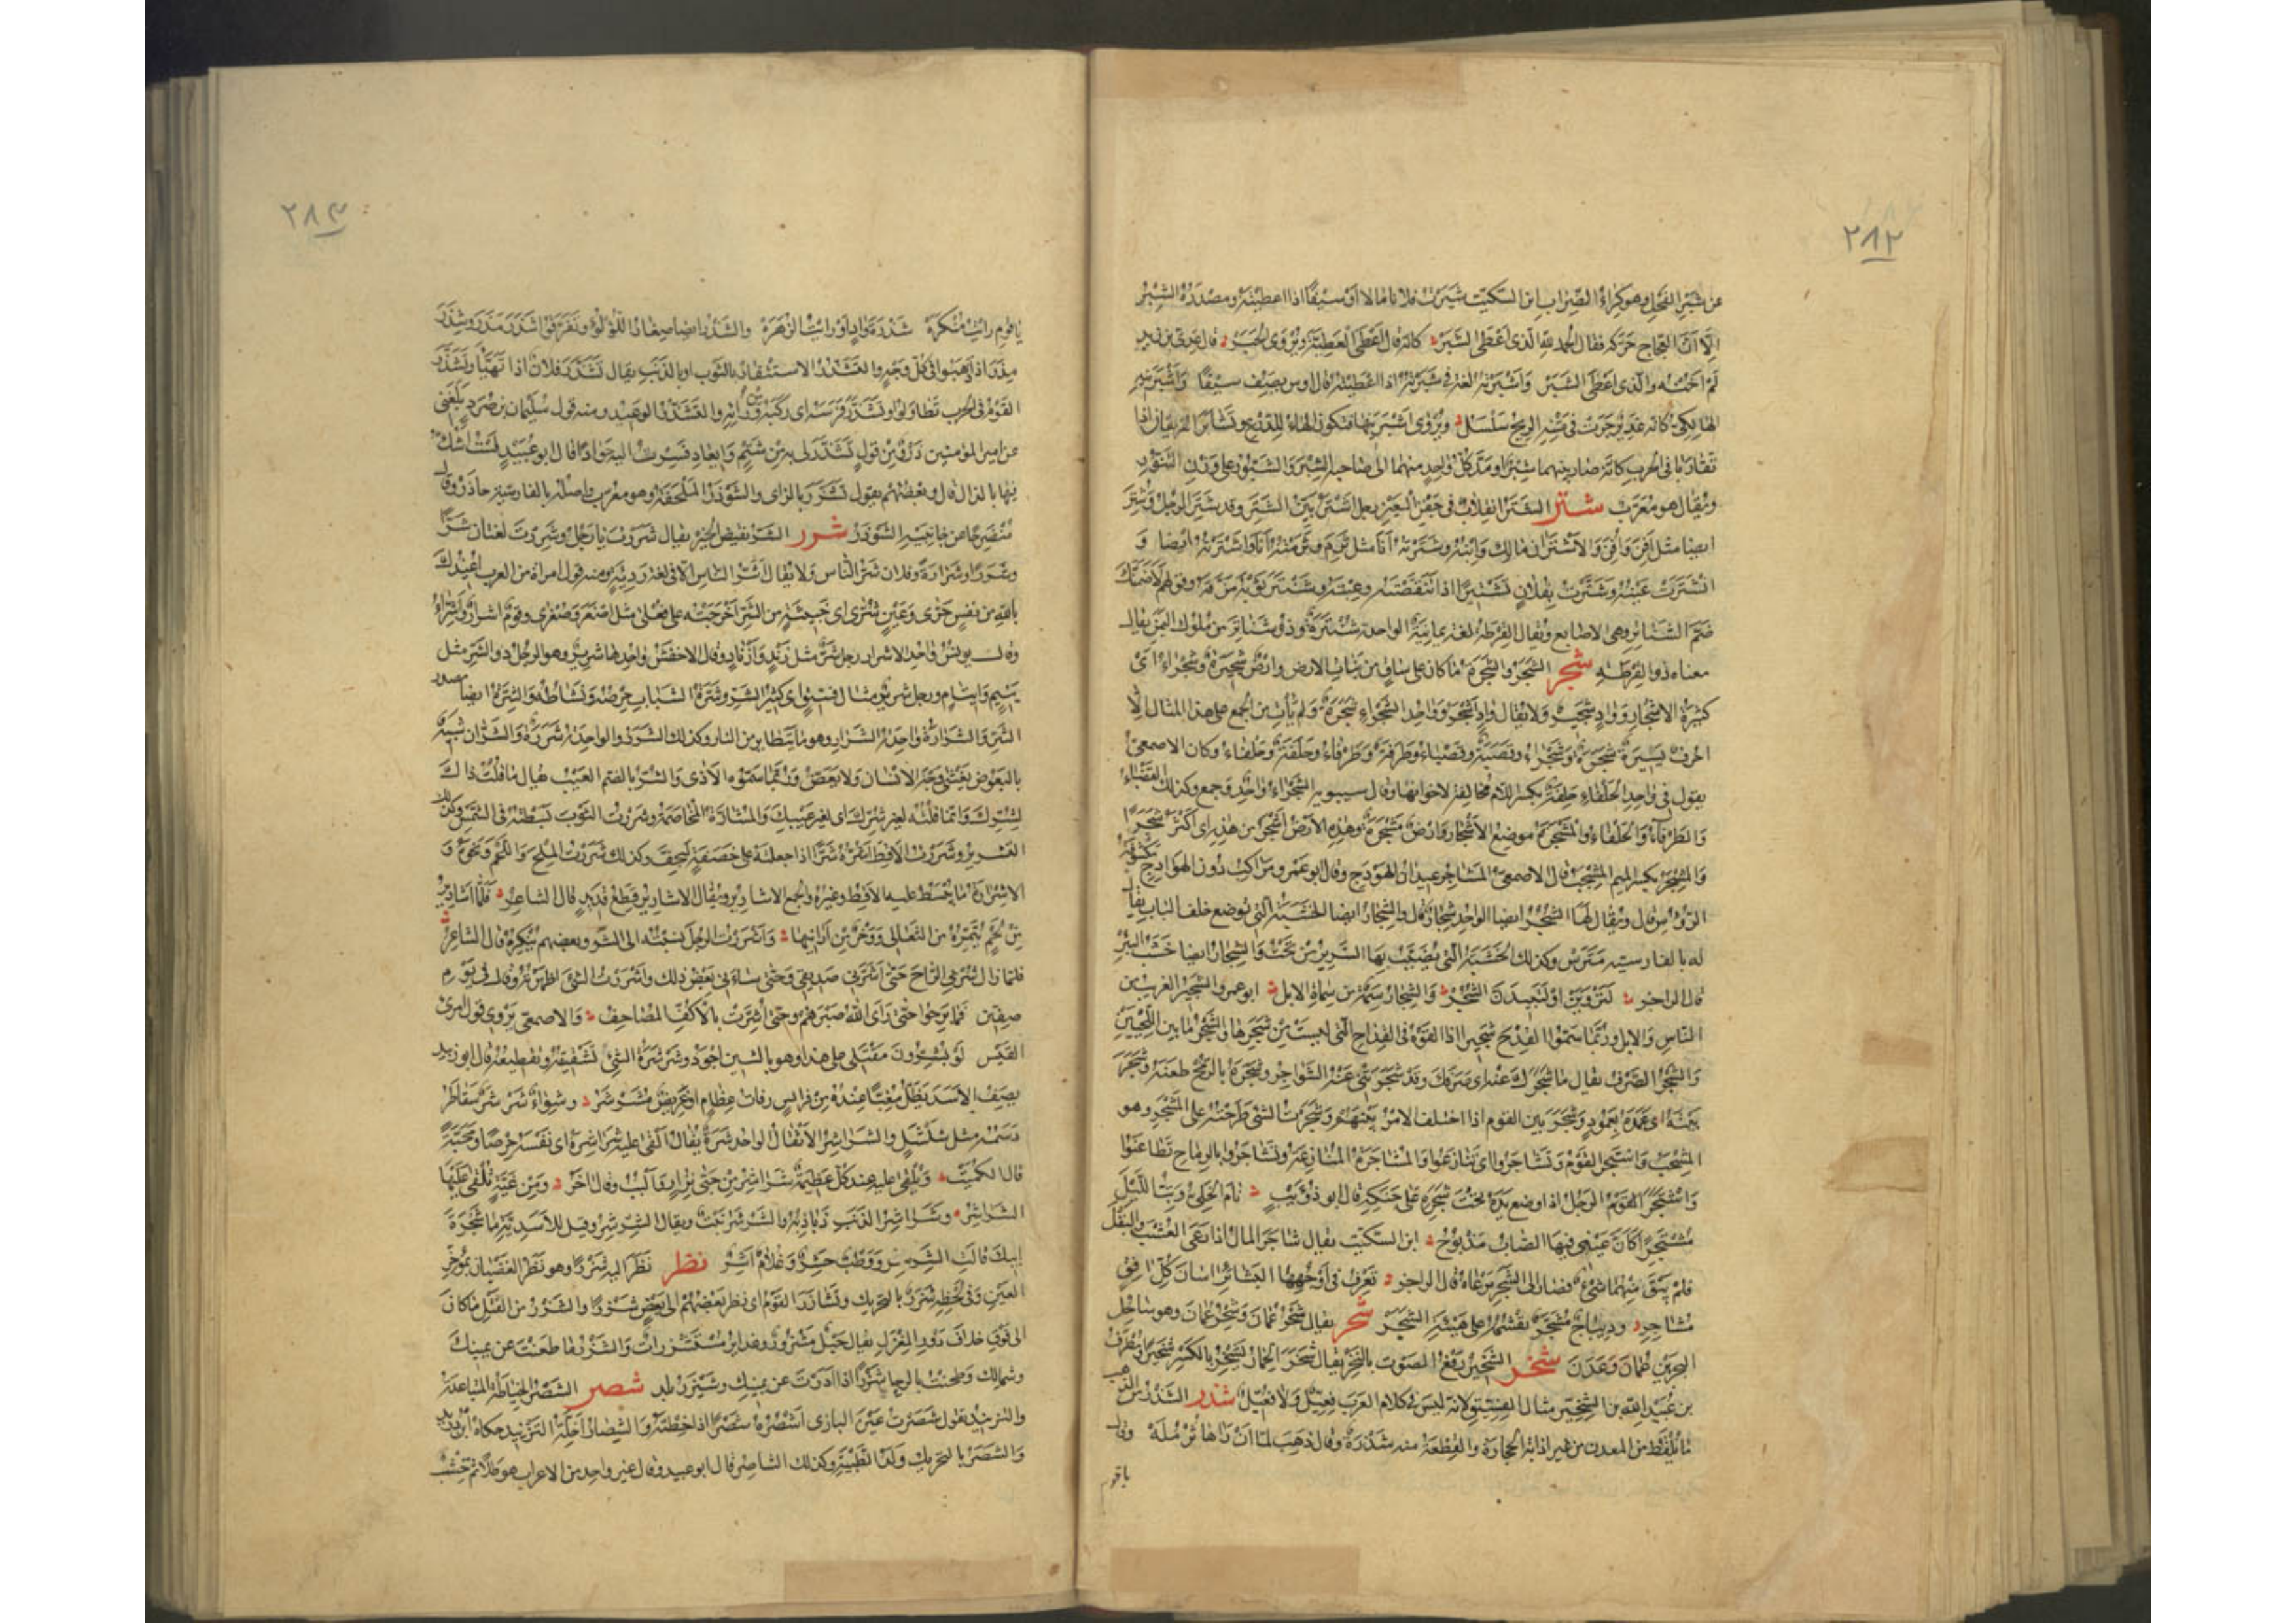 ٢٨٢
عن شبر الفحل وهو كراء الضراب ابن السكيت شبرت فلانا مالا او سيفا اذا اعطيته ومصدره الشبر
الا ان العجاج حركه فقال الحمد لله الذي اعطى الشبر كانه قال اعطى العطية ويروى الحبر قال عدي بن زيد
لم اخنه والذي اعطى الشبر واشبرته لغة في شبرته اذا اعطيته قال اوس يصف سيفا واشبرنيه
الهالكي كانه غدير جرت في متنه الريح سلسل ويروى اشبرنيها فتكون الهاء للدرع وتشابر الفريقان اذا
تقاربا في الحرب كانه صار بينهما شبر او مد كل واحد منهما الى صاحبه الشبر والشبور على وزن التنور
ويقال هو معرب شتر الشتر انقلاب في جفن العين رجل اشتر بين الشتر وقد شتر الرجل وشتر
ايضا مثل افن وافن والاشتران مالك وابنه وشترته انا مثل ثرم وثرمته انا واشترته ايضا و
انشترت عينه وشترت بفلان تشتيرا اذا تنقصته وعبته وشنتر ثوبه مزقه وقولهم لاضمنك
ضم الشناتر وهي الاصابع ويقال القرطة لغة يمانية الواحدة شنترة وذو شناتر من ملوك اليمن يقال
معناه ذو القرطة شجر الشجر والشجرة ما كان على ساق من نبات الارض وارض شجيرة وشجراء اي
كثيرة الاشجار وواد شجير ولا يقال واد اشجر وواحد الشجراء شجرة ولم يأت من الجمع على هذا المثال الا
احرف يسيرة شجرة وشجراء وقصبة وقصباء وطرفة وطرفاء وحلفة وحلفاء وكان الاصمعي
يقول في واحد الحلفاء حلفة بكسر اللام مخالفة لاخواتها وقال سيبويه الشجراء واحد وجمع وكذلك القصباء
والطرفاء والحلفاء والمشجرة موضع الاشجار وارض مشجرة وهذه الارض اشجر من هذه اي اكثر شجرا
والمشجر بكسر الميم المشجب قال الاصمعي المشاجر عيدان الهودج وقال ابو عمرو مراكب دون الهوادج مكشوفة
الرؤس قال ويقال لها الشجر ايضا الواحد شجار قال والشجار ايضا الخشبة التي توضع خلف الباب يقال
له بالفارسية مترس وكذلك الخشبة التي يضبب بها السرير من تحت والشجار ايضا خشب البئر
قال الراجز لتروين او لتبيدن الشجر والشجار سمة من سمات الابل ابو عمرو الشجير الغريب من
الناس والابل وربما سموا القدح شجيرا اذا القوه في القداح التي ليست من شجرها والشجر ما بين اللحيين
والشجر الصرف يقال ما شجرك عنه اي صرفك وقد شجرتني عنه الشواجر وشجره بالرمح طعنه وشجر
بيته اي عمده بعمود وشجر بين القوم اذا اختلف الامر بينهم وشجرت الشئ طرحته على المشجر وهو
المشجب واشتجر القوم وتشاجروا اي تنازعوا والمشاجرة المنازعة وتشاجروا بالرماح تطاعنوا
واشتجر الرجل اذا وضع يده تحت شجره على حنكه قال ابو ذؤيب نام الخلي وبت الليل
مشتجرا كان عيني فيها الصاب مذبوح ابن السكيت يقال شاجر المال اذا رعى العشب والبقل
فلم يبق منهما شئ فصار الى الشجر يرعاه قال الراجز تعرف في اوجهها البشائر اسان كل افق
مشاجر وديباج مشجر نقشه على هيئة الشجر شحر يقال شحر عمان وشحر عمان وهو ساحل
البحر بين عمان وعدن شخر الشخير رفع الصوت بالنخر يقال شخر الحمار يشخر بالكسر شخيرا ومطرف
بن عبد الله بن الشخير مثال الفسيق لانه ليس في كلام العرب فعيل ولا فعيل شذر الشذر من الذهب
ما يلقط من المعدن من غير اذابة الحجارة والقطعة منه شذرة وقال ذهب لما ان راها ثرملة وقال
يا قوم
٢٨٣
يا قوم رايت منكره شذرة واد او رايت الزهره والشذر ايضا صغار اللؤلؤ وتفرقوا شذر مذر وشذر
مذر اذا ذهبوا في كل وجه والتشذر الاستثفار بالثوب او بالذنب يقال تشذر فلان اذا تهيأ وتشذر
القوم في الحرب تطاولوا وتشذر فرسه اي ركبه من ورائه والتشذر الوعيد ومنه قول سليمان بن صرد بلغني
عن امير المؤمنين ذرؤ من قول تشذر لي به من شتم وايعاد فسرت اليه جوادا قال ابو عبيد لست اشك
فيها بالذال قال وبعضهم يقول تشزر بالزاي والشوذر الملحفة وهو معرب واصله بالفارسية جاذر وقال
منضرجا عن جانبيه الشوذر شرر الشر نقيض الخير يقال شررت يا رجل وشررت لغتان شرا
وشررا وشرارة وفلان شر الناس ولا يقال اشر الناس الا في لغة رديئة ومنه قول امراة من العرب اعيذك
بالله من نفس حرى وعين شرى اي خبيثة من الشر اخرجته على فعلى مثل اصغر وصغرى وقوم اشرار واشراء
وقال يونس واحد الاشرار رجل شر مثل زند وازناد وقال الاخفش واحدها شرير وهو الرجل ذو الشر مثل
يتيم وايتام ورجل شرير مثال فسيق اي كثير الشر وشرة الشباب حرصه ونشاطه والشرة ايضا مصدر
الشر والشرارة واحدة الشرار وهو ما يتطاير من النار وكذلك الشرر والواحدة شررة والشران شبيه
بالبعوض يغشى وجه الانسان ولا يعض وربما سموه الاذى والشر بالضم العيب يقال ما قلت ذاك
لشرك وانما قلته لغير شرك اي لغير عيبك والمشارة المخاصمة وشررت الثوب بسطته في الشمس وكذلك
التشرير وشررت الاقط اشره شرا اذا جعلته على خصفة ليجف وكذلك شررت الملح واللحم ونحوه و
الاشرارة ما يبسط عليه الاقط وغيره والجمع الاشارير ويقال الاشارير قطع قديد قال الشاعر لها اشارير
من لحم تتمره من الثعالي ووخز من ارانيها واشررت الرجل نسبته الى الشر وبعضهم ينكره قال الشاعر
فما زال شربي الراح حتى اشرني صديقي وحتى ساءني بعض ذلك واشررت الشئ اظهرته وقال في يوم
صفين فما برحوا حتى راى الله صبرهم وحتى اشرت بالاكف المصاحف والاصمعي يروي قول امرئ
القيس لو يشرون مقتلي على هذا وهو بالسين اجود وشرشرة الشئ تشقيقه وتقطيعه قال ابو زبيد
يصف الاسد يظل مغبا عنده من فرائس رفات عظام او غريض مشرشر وشواء شرشر يتقاطر
دسمه مثل سلسل والشراشر الاثقال الواحدة شرشرة يقال القى عليه شراشره اي نفسه حرصا ومحبة
قال الكميت وتلقى عليه عند كل عظيمة شراشر من حيي نزار والبب وقال اخر ومن غية تلقى عليها
الشراشر وشراشر الذنب ذباذبه والشرشر نبت ويقال الشرشر وقيل للاسدية ما شجرة
ابيك قالت الشرشر ووطب حشر وغلام اشر نظر نظر اليه شزرا وهو نظر الغضبان بمؤخر
العين وفي لحظه شزر بالتحريك وتشازر القوم اي نظر بعضهم الى بعض شزرا والشزر من الفتل ما كان
الى فوق خلاف دور المغزل يقال حبل مشزور وغدائر مستشزرات والشزر ما طعنت عن يمينك
وشمالك وطحنت بالرحا شزرا اذا ادرت عن يمينك وشيزر بلد شصر الشصر الخياطة المتباعدة
والتزنيد تقول شصرت عين البازي اشصره شصرا اذا خطته والشصار اخلة التزنيد حكاه ابن دريد
والشصر بالتحريك ولد الظبية وكذلك الشاصر قال ابو عبيد وقال غير واحد من الاعراب هو طلا ثم خشف